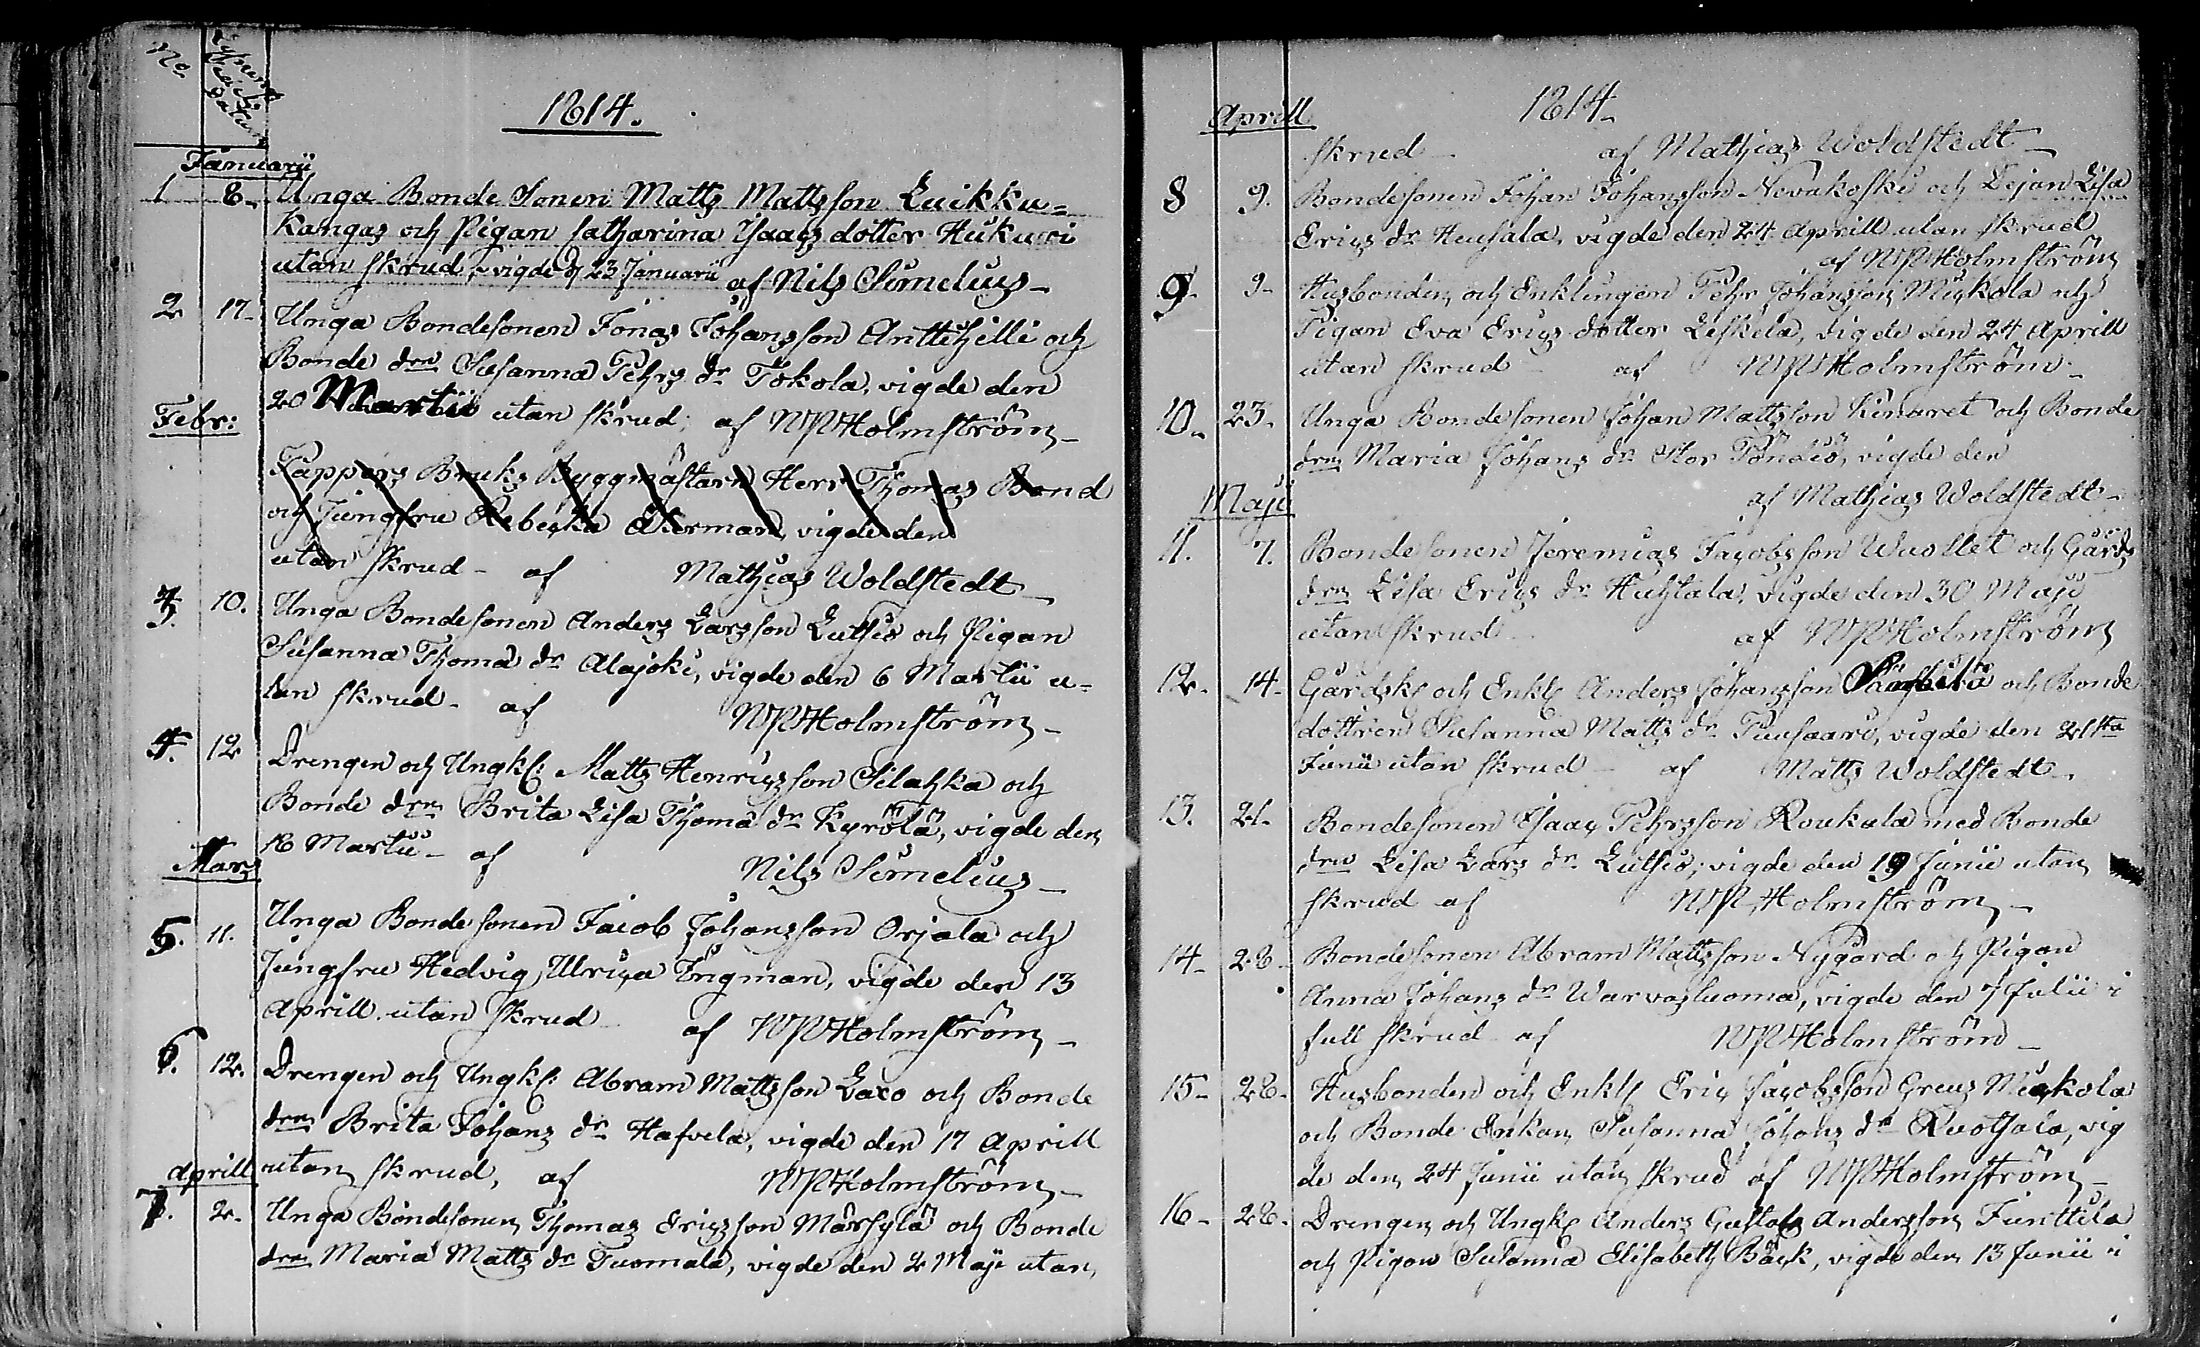 No
Lysnings
datum
1814.
Januarii
1 8. Unga Bonde Sonen Matts Mattsson Luikku=
kangas och Pigan Catharina Isaacs dotter Hukuri
utan skrud, vigde d 23 Januarii af Nils Sumelius
2 17. Unga Bondesonen Jonas Johansson Anttihilli och
Bonde drn Susanna Pehrs dr Tokola, vigde den
20 Martii utan skrud; af NPHolmström
Febr:
Kappers Bruks Byggmästarn Herr Thomas Bond
och Jungfru Rebecka Åkerman, vigde den
utan skrud – af Mathias Woldstedt
3. 10. Unga Bondesonen Anders Larsson Lutsio och Pigan
Susanna Thomæ dr Alajoki, vigde den 6 Martii u=
tan skrud – af NPHolmström
4. 12 Drengen och Ungk: Matts Henricsson Silahka och
Bonde drn Brita Lisa Thomæ dr Kyrölä, vigde den
18 Martii – af Nils Sumelius
Mars
5. 11. Unga Bonde sonen Jacob Johansson Orjala och
Jungfru Hedvig Ulrica Engman, vigde den 13
Aprill utan skrud af NPHolmström
6. 12. Drengen och Ungk: Abram Mattsson Laxo och Bonde
drn Brita Johans dr Hafvela, vigde den 17 Aprill
utan skrud, af NPHolmström
Aprill
7. 2. Unga Bondesonen Thomas Ericsson Märsylä och Bonde
drn Maria Matts dr Tuomala, vigde den 2 Maji utan
Aprill
1814
skrud – af Mathias Woldstedt
8 9. Bondesonen Johan Johansson Nevakoski och Pejan Lisa
Erics dr Heusala, vigde den 24 Aprill utan skrud
af NPHolmström
9. 9. Husbonden och Enklingen Pehr Johansson Muskola och
Pigan Eva Erics dotter Leskelä, vigde den 24 Aprill
utan skrud – af NPHolmström
10. 23. Unga Bondesonen Johan Mattsson Kinaret och Bonde
drn Maria Johans dr Stor Pöndiö, vigde den
af Mathias Woldstedt
Maji
11. 7. Bondesonen Jeremias Jacobsson Wuollet och Gårds
drn Lisa Erics dr Huhtala, vigde den 30 Maji
utan skrud – af NPHolmström
12. 14. Gårdsk och Enkl Anders Johansson och Bonde
dottren Susanna Matts dr Puusaari, vigde den 21sta
Junii utan skrud – af Matts Woldstedt
13. 21. Bondesonen Isaac Pehrsson Roukala med Bonde
drn Lisa Lars dr Lutsio, vigde den 19 Junii utan
skrud af NPHolmström
14. 28. Bondesonen Abram Mattsson Nygård och Pigan
Anna Johans dr Warvasluoma, vigde den 7 Julii i
full skrud af NPHolmström
15. 28. Husbonden och Enkl Eric Jacobsson Greus Muskola
och Bonde Enkan Susanna Johans dr Ruotsala, vig
de den 24 Junii utan skrud af NPHolmström
16. 28. Drengen och Ungk Anders Gustaf Andersson Junttila
och Pigan Susanna Elisabeth Bäck, vigde den 13 Junii i